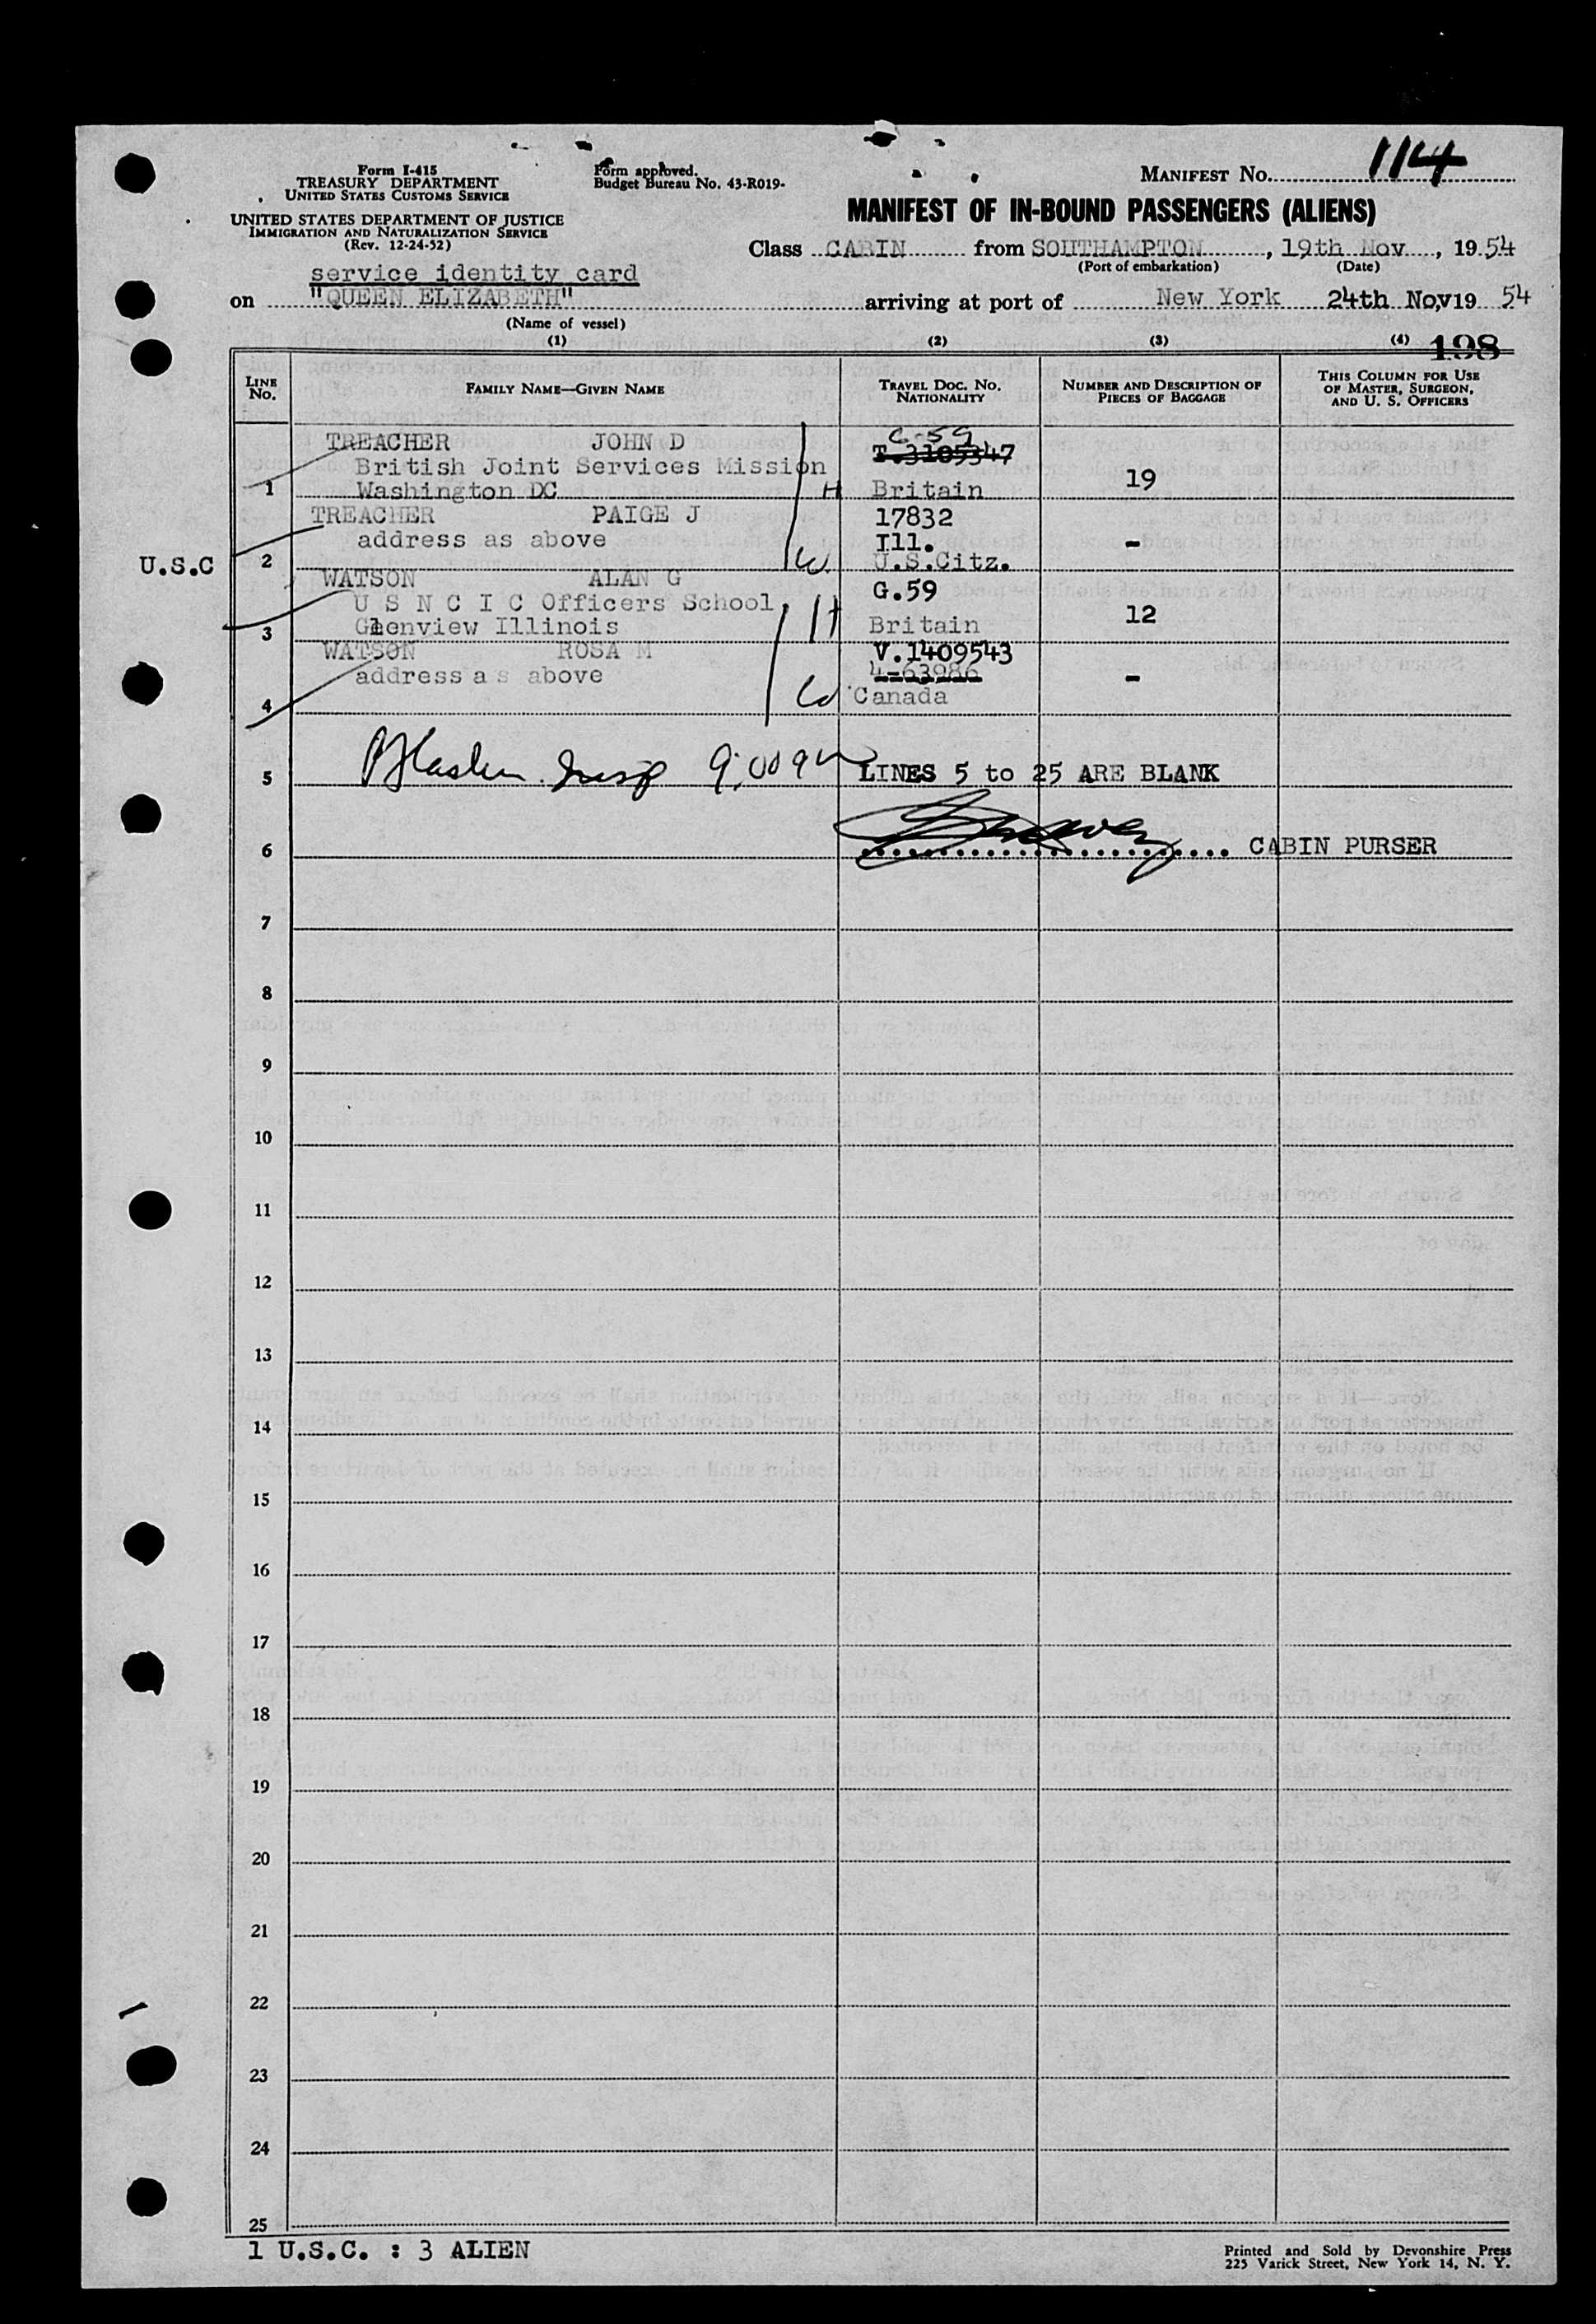 Form I-415
TREASURY DEPARTMENT
UNITED STATES CUSTOMS SERVICE
UNITED STATES DEPARTMENT OF JUSTICE
IMMIGRATION AND NATURALIZATION SERVICE
(Rev. 12-24-52)
Form approved.
Budget Bureau No. 43-R019-
MANIFEST No. 114
MANIFEST OF IN-BOUND PASSENGERS (ALIENS)
Class CABIN from SOUTHAMPTON, 19th Nov, 1954
(Port of embarkation) (Date)
service identity card
on "QUEEN ELIZABETH" arriving at port of New York 24th Nov, 19 54
(Name of vessel)
(1) (2) (3) (4) 198
LINE No. FAMILY NAME—GIVEN NAME TRAVEL DOC. NO. NATIONALITY NUMBER AND DESCRIPTION OF PIECES OF BAGGAGE THIS COLUMN FOR USE OF MASTER, SURGEON, AND U. S. OFFICERS
C-59
TREACHER JOHN D T.3105347
British Joint Services Mission
1 Washington DC H Britain 19
TREACHER PAIGE J 17832
address as above Ill. -
U.S.C 2 W. U.S.Citz.
WATSON ALAN G G.59
U S N C I C Officers School, H 12
3 Glenview Illinois Britain
WATSON ROSA M V.1409543
address as above 4-63986 -
4 W Canada
5 9:00 am LINES 5 to 25 ARE BLANK
6 CABIN PURSER
7
8
9
10
11
12
13
14
15
16
17
18
19
20
21
22
23
24
25
1 U.S.C. : 3 ALIEN
Printed and Sold by Devonshire Press
225 Varick Street, New York 14, N. Y.